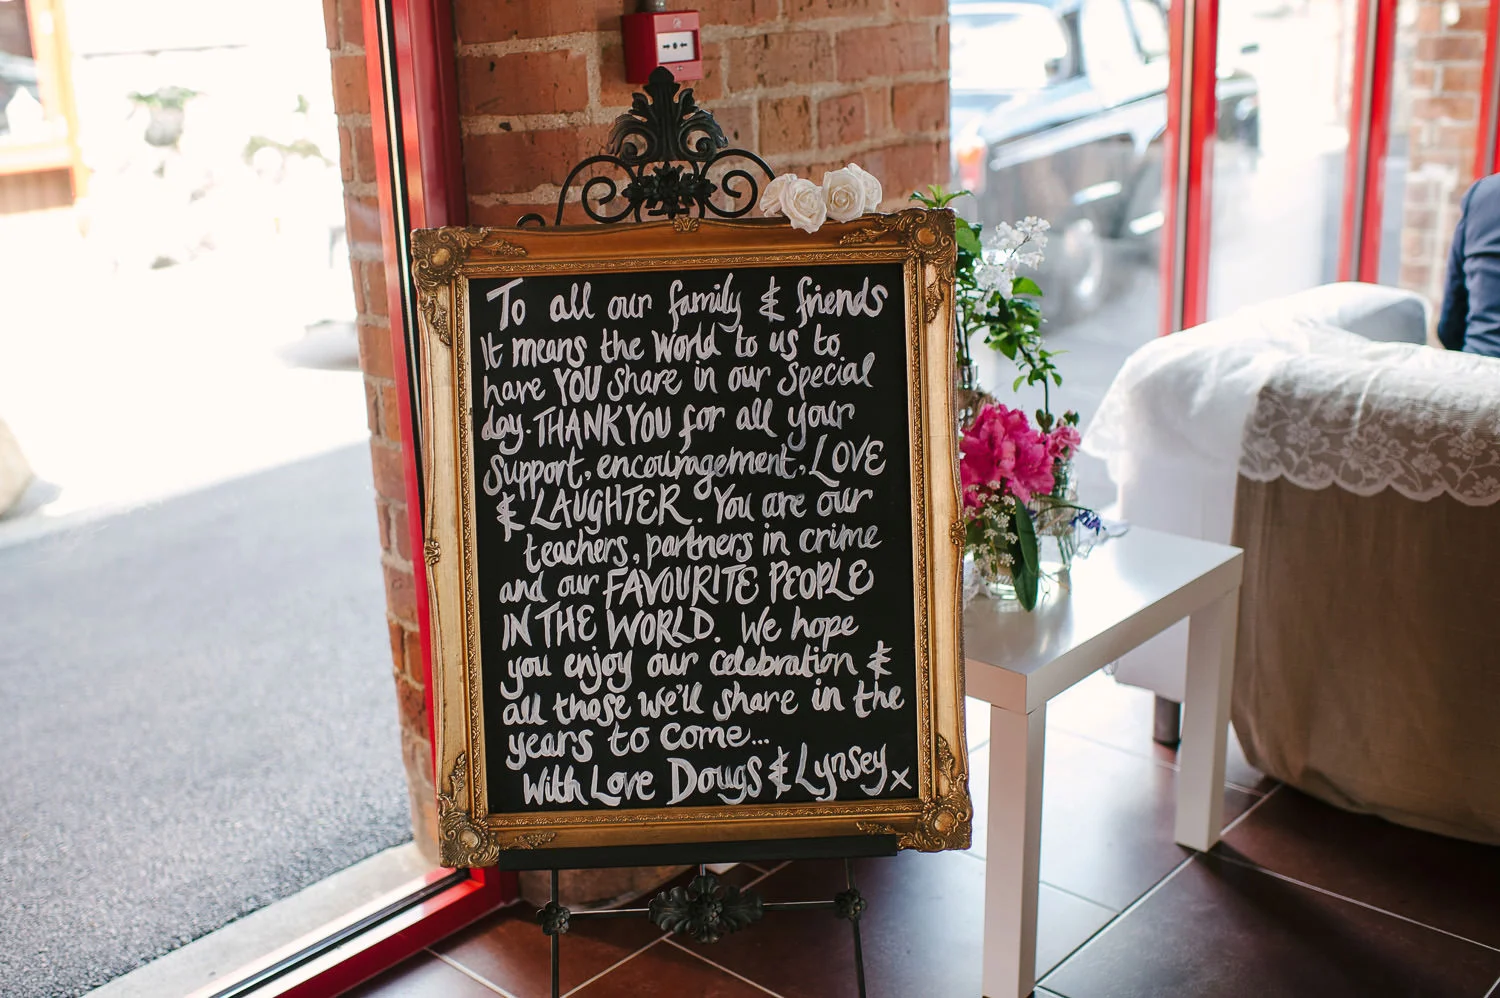 To all our family & friends
It means the world to us to
have YOU share in our special
day. THANK YOU for all your
support, encouragement, LOVE
& LAUGHTER. You are our
teachers, partners in crime
and our FAVOURITE PEOPLE
IN THE WORLD. We hope
you enjoy our celebration &
all those we'll share in the
years to come...
With Love Dougs & Lynsey x